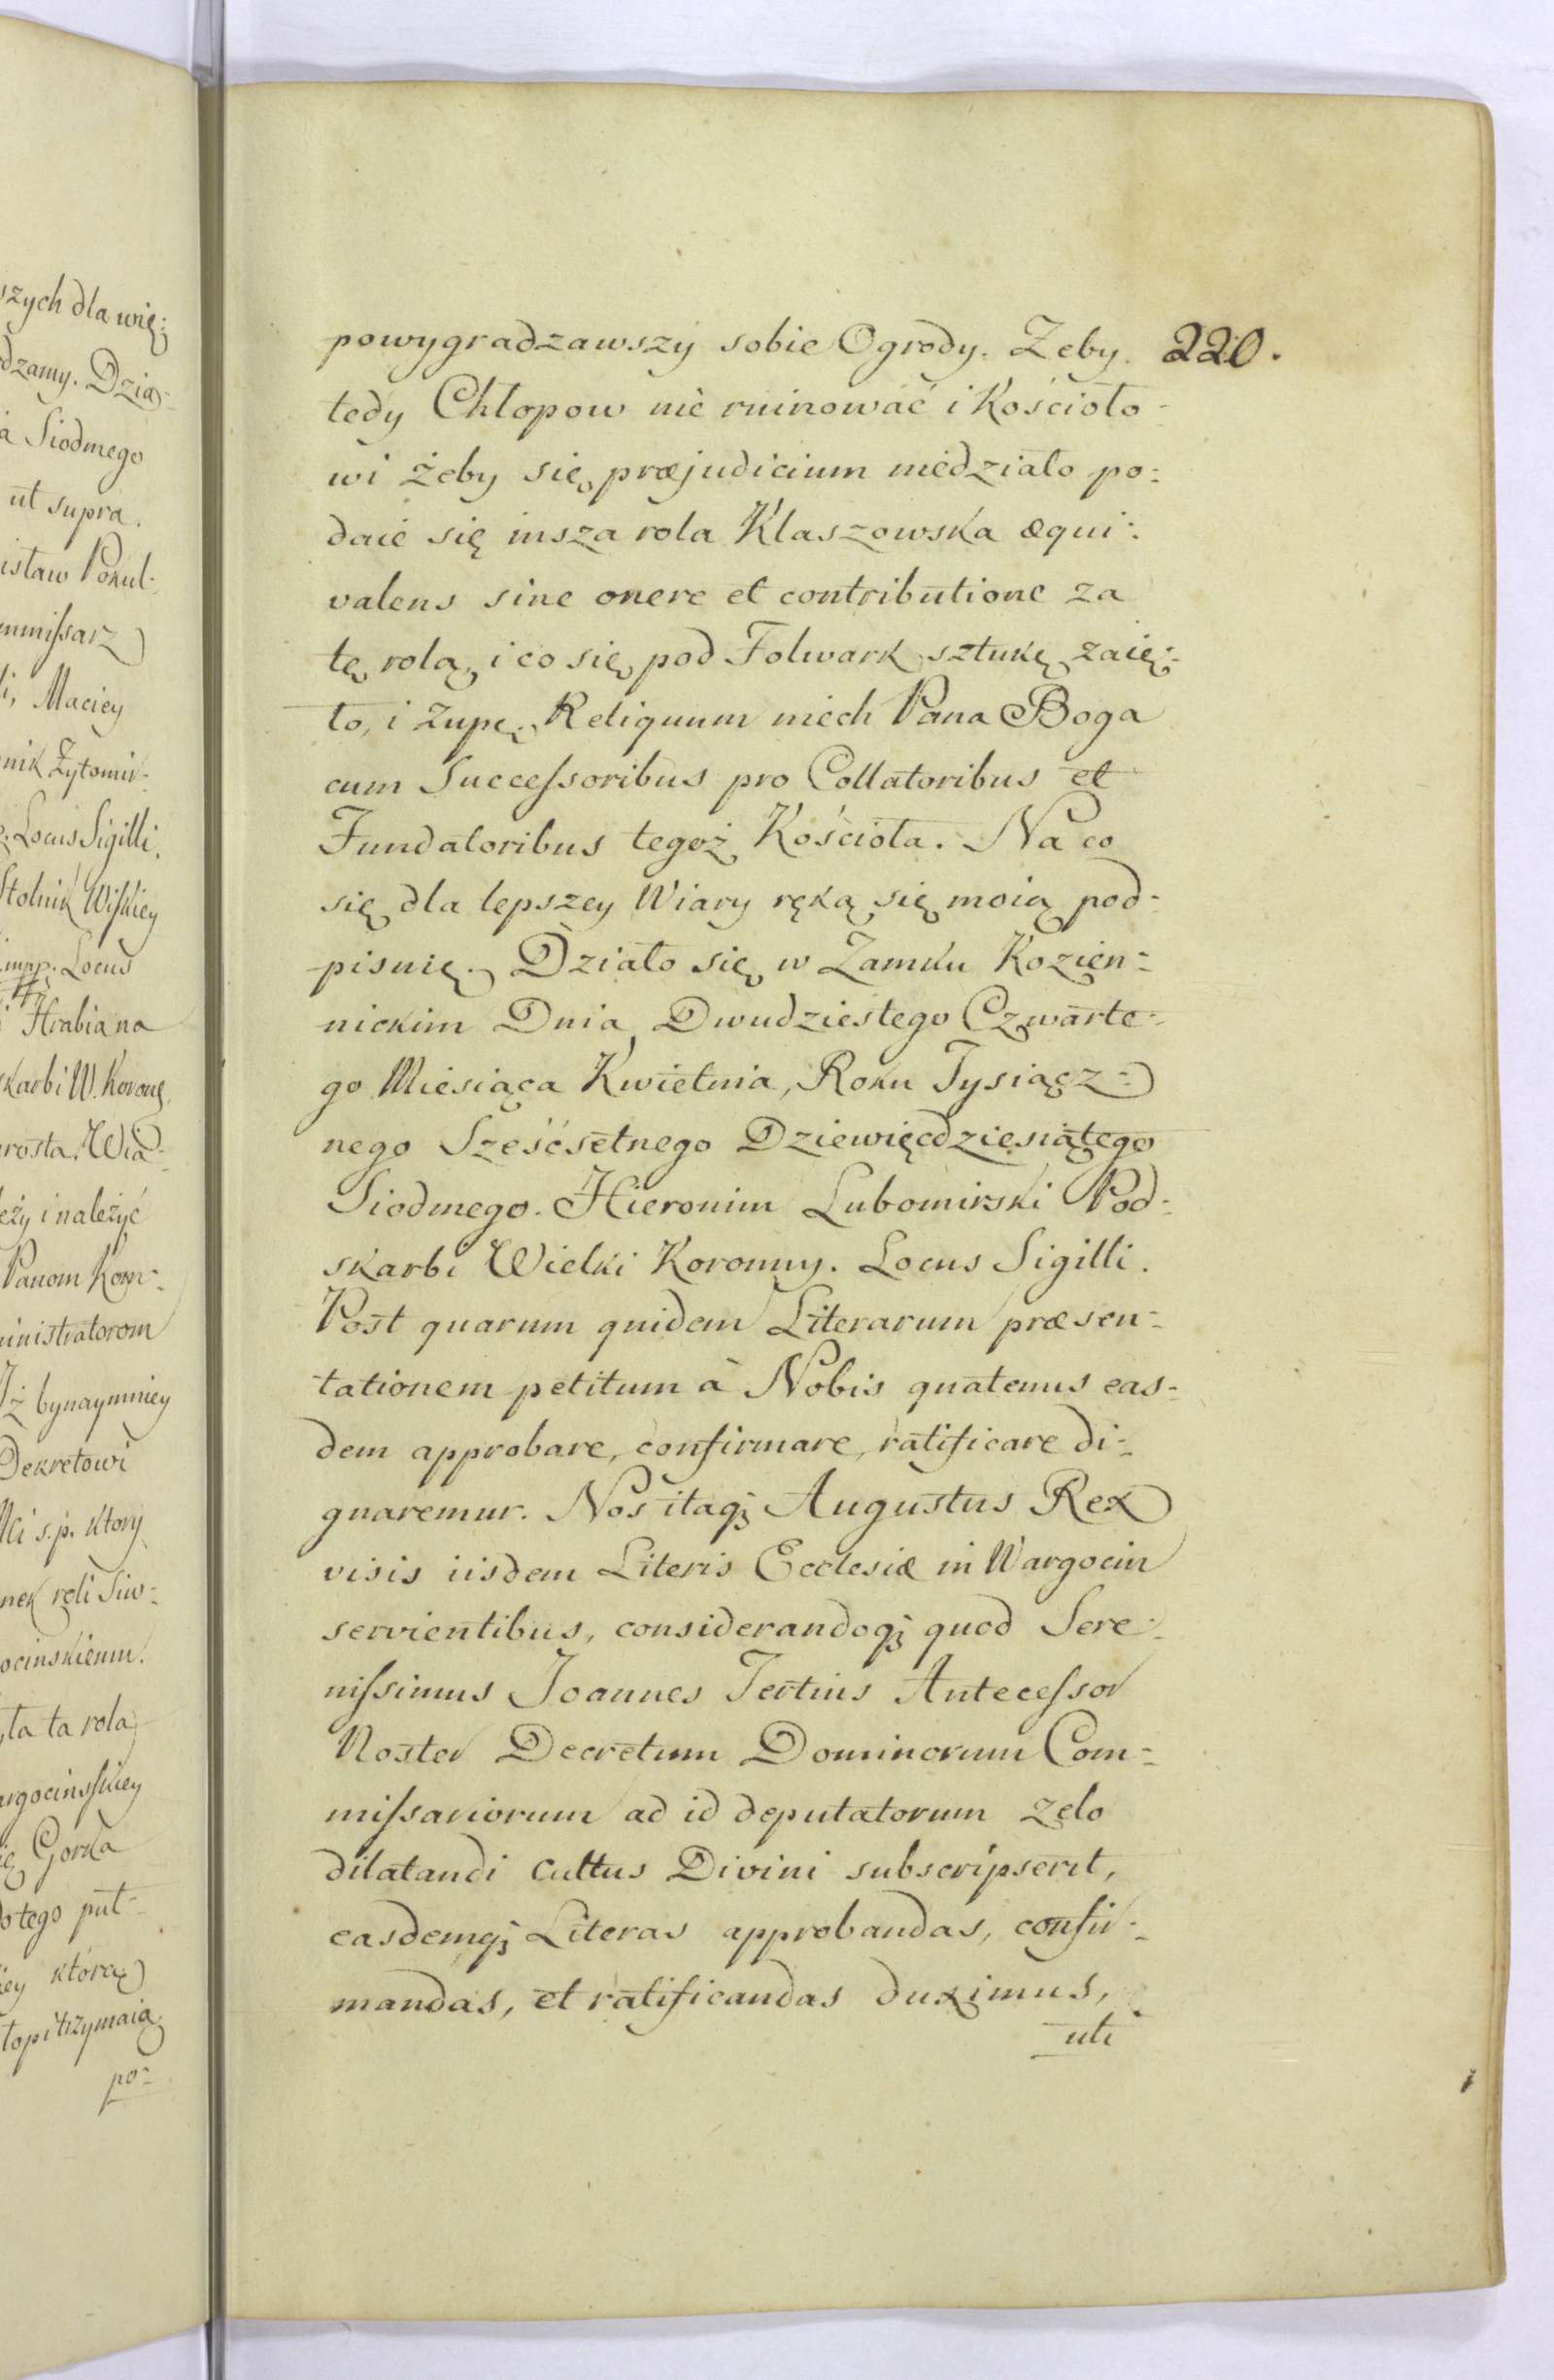 szych dla wię:
dzamy. Dzia-
a Siodmego
ut supra.
isław Pokul-
mmiſsarz
i, Maciey
nik Żytomir-
Locus Sigilli.
Stolnik Wiſkiey
mpp. Locus
i Hrabia na
skarbi W. Korong.
rosta. Wia-
eży i należyć
Panom Kom-
ministratorom
Iż bynaymniey
Dekretowi
Mci s.p. ktory
nek roli Siw-
ocinskiemu.
ta ta rola
argocinsſkiey
ię Gorka
do tego put-
iey która
łopi trzymaią
po-
220.
powygradzawszy sobie Ogrody. Zeby
tedy Chłopow nie ruinować i Kościoło-
wi żeby się præjudicium niedziało po-
daie się insza rola Klaszowska æqui-
valens sine onere et contributione za
tę rolą, i co się pod Folwark sztukę zaię-
to, i żupę. Reliquum niech Pana Boga
cum Succeſsoribus pro Collatoribus et
Fundatoribus tegoż Kościoła. Na co
się dla lepszey Wiary ręką się moią pod-
pisuię. Działo się w Zamku Kozien-
nickim Dnia Dwudziestego Czwarte-
go Miesiąca Kwietnia, Roku Tysiącz-
nego Sześćsetnego Dziewięcdziesiątego
Siodmego. Hieronim Lubomirski Pod-
skarbi Wielki Koronny. Locus Sigilli.
Post quarum quidem Literarum præsen-
tationem petitum à Nobis quatenus eas-
dem approbare, confirmare, ratificare di-
gnaremur. Nos itaq; Augustus Rex
visis iisdem Literis Ecclesiæ in Wargocin
servientibus, considerandoq; quod Sere-
niſsimus Joannes Tertius Anteceſsor
Noster Decretum Dominorum Com-
miſsariorum ad id deputatorum zelo
dilatandi Cultus Divini subscripserit,
easdemq; Literas approbandas, confir-
mandas, et ratificandas duximus,
uti